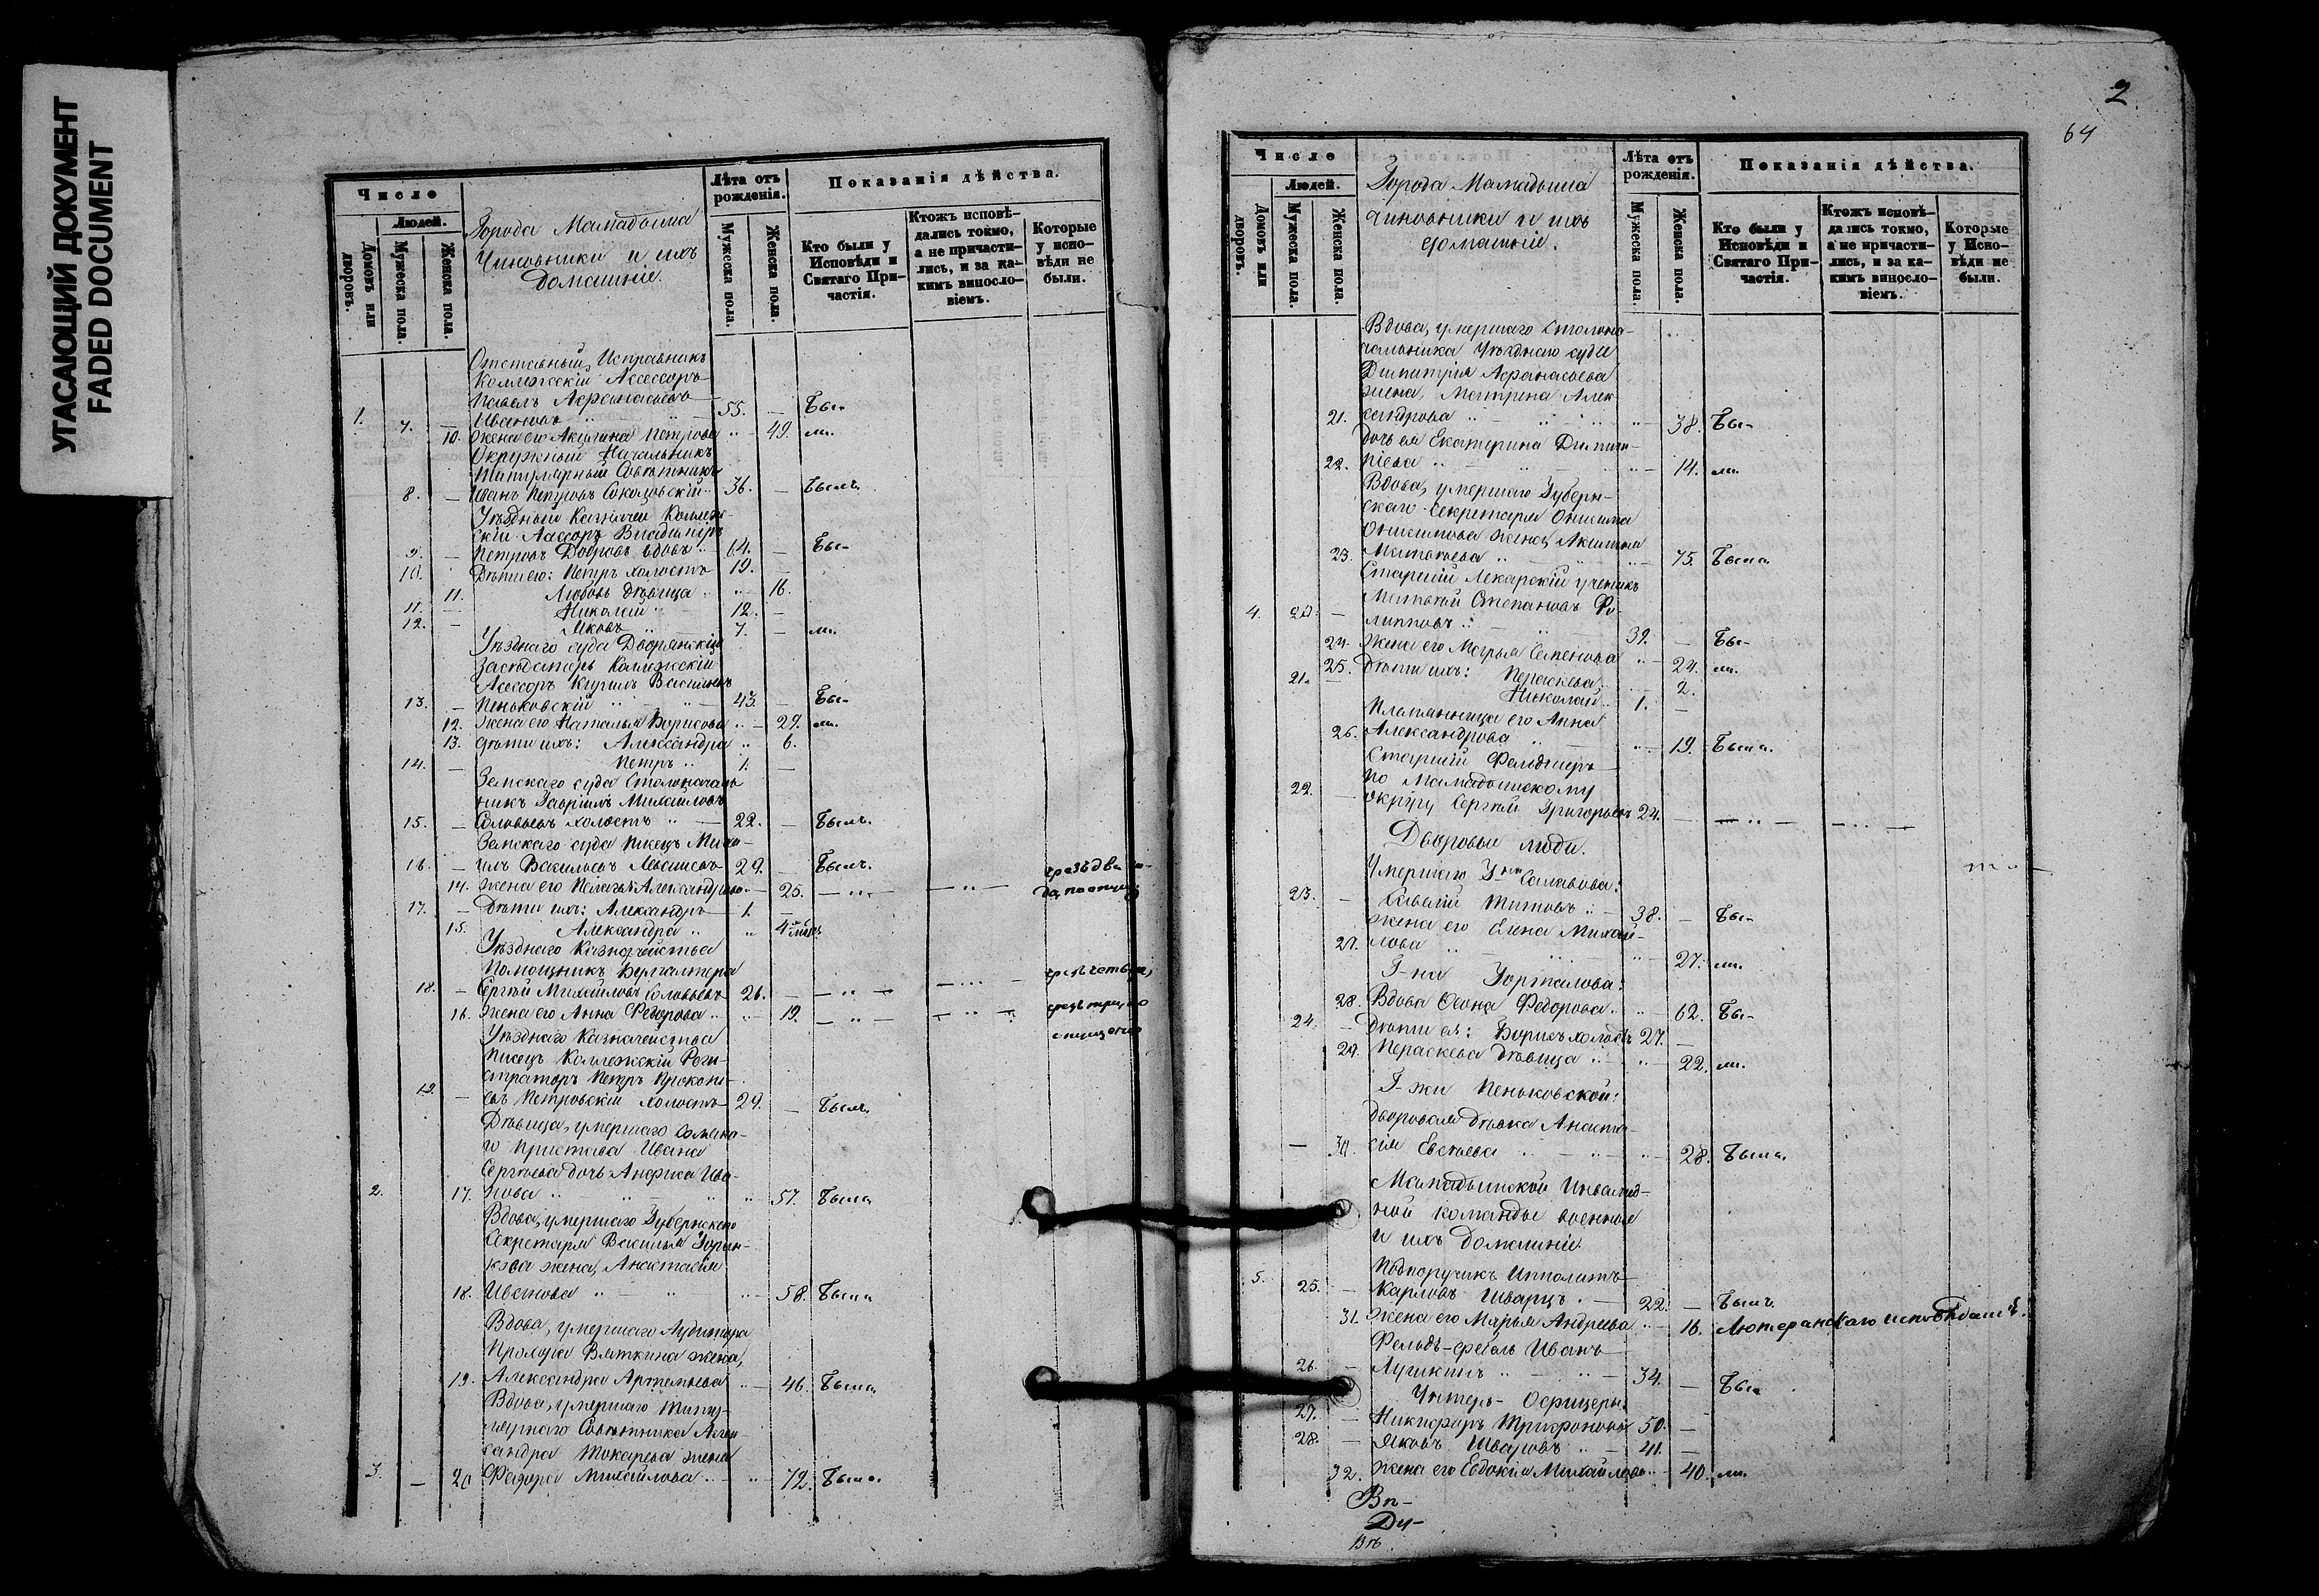 УГАСАЮЩИЙ ДОКУМЕНТ
FADED DOCUMENT
Число
Людей.
Домовъ или дворовъ.
Мужеска пола.
Женска пола.
Города Мамадыша
Чиновники и ихъ
домашніе.
Лѣта отъ рожденія.
Мужеска пола.
Женска пола.
Показанія дѣйства.
Кто были у Исповѣди и Святаго Причастія.
Ктожъ исповѣдались токмо, а не причастились, и за какимъ винословіемъ.
Которые у исповѣди не были.
Отставный Исправникъ
Коллежскій Ассессоръ
Павелъ Афанасьевъ
1. 7. — Ивановъ 55. — Бы-
10. Жена его Акулина Петрова 49. ли.
Окружный Начальникъ
Титулярный Совѣтникъ
8. — Иванъ Петровъ Соколовскій 36. — Былъ.
Уѣздный Казначей Коллеж-
скій Ассессоръ Владимиръ
9. — Петровъ Добровъ вдовъ 64. — Бы-
10. Дѣти его: Петръ холостъ 19. —
11. Любовь дѣвица 16.
11. — Николай 12. —
12. — Яковъ 7. — ли.
Уѣзднаго суда Дворянскій
Засѣдатель Коллежскій
Асессоръ Кирилъ Васильевъ
13. — Пеньковскій 43. — Бы-
12. Жена его Наталья Борисова 29. ли.
13. дѣти ихъ: Александра 6.
14. — Петръ 1. —
Земскаго суда Столоначаль
никъ Гавріилъ Михайловъ
15. — Соловьевъ холостъ 22. — Былъ.
Земскаго суда писецъ Миха-
16. — илъ Васильевъ 29. — Былъ.
14. Жена его Пелагея Александрова 25. — „ — — „ —
17. — Дѣти ихъ: Александръ 1. —
15. Александра „ 4
Уѣзднаго Казначейства
Помощникъ Бухгалтера
18. — Сергѣй Михайловъ Соловьевъ 26. — — „ — — „ —
16. Жена его Анна Федорова 19. — „ — — „ —
Уѣзднаго Казначейства
писецъ Коллежскій Реги-
страторъ Петръ Прокопь-
19. — евъ Петровскій холостъ 29. — Былъ.
Дѣвица, умершаго
Пристава Ивана
Сергѣева дочь Анфиса Ива-
2. 17. нова 57. Была
Вдова, умершаго Губернскаго
Секретаря Василья
жена, Анастасія
18. Иванова 58. Была
Вдова, умершаго Аудитора
Вяткина жена,
19. Александра Артемьева 46. Была
Вдова, умершаго Титу-
лярнаго Совѣтника Алек-
сандра Токарева жена
3. — 20 Федора Михайлова 72. Была.
2
64
Число
Людей.
Домовъ или дворовъ.
Мужеска пола.
Женска пола.
Города Мамадыша
чиновники и ихъ
домашніе.
Лѣта отъ рожденія.
Мужеска пола.
Женска пола.
Показанія дѣйства.
Кто были у Исповѣди и Святаго Причастія.
Ктожъ исповѣдались токмо, а не причастились, и за какимъ винословіемъ.
Которые у Исповѣди не были.
Вдова, умершаго столона-
чальника Уѣзднаго суда
Димитрія Афанасьева
жена, Матрена Алек-
21. сандрова 38. Бы-
дочь ея Екатерина Димит-
22. ріева 14. ли.
Вдова, умершаго Губерн-
скаго Секретаря Онисима
Онисимова жена, Акилина
23. Матвѣева 75. Была.
Старшій Лекарскій ученикъ
Матвѣй Степановъ Фи-
4. 20. — липповъ 39. — Бы-
24. Жена его Марья Семенова 24. ли.
25. Дѣти ихъ: Параскева 2.
21. — Николай 1. —
Племянница его Анна
26. Александрова 19. Была.
Старшій Фельдшеръ
по Мамадышскому
22. — округу Сергѣй Григорьевъ 24. — — „ — — „ —
Дворовые люди.
Умершаго
23. — Савелій Титовъ 38. — Бы-
жена его Елена Михай-
27. лова 27. ли.
Г-на Горталова:
28. Вдова Федорова 62. Бы-
24. — Дѣти ея: Борисъ холостъ 27. —
29. Параскева дѣвица 22. ли.
Г-жи Пеньковской:
дворовая дѣвка Анаста-
— 30. сія Евсѣева 28. Была.
Мамадышской Инвалид-
ной команды военные
и ихъ домашніе.
Подпоручикъ Ипполитъ
5. 25. — Карловъ Шварцъ 22. — Былъ.
31. Жена его Марья Андреева 16. Лютеранскаго исповѣданія.
Фельдъ-фебель Иванъ
26. — Лучкинъ 34. — Бы-
Унтеръ-Офицеры:
27. — Никифоръ Трифоновъ 50. —
28. — Яковъ Шваровъ 41. —
32. Жена его Евдокія Михайлова 40. ли.